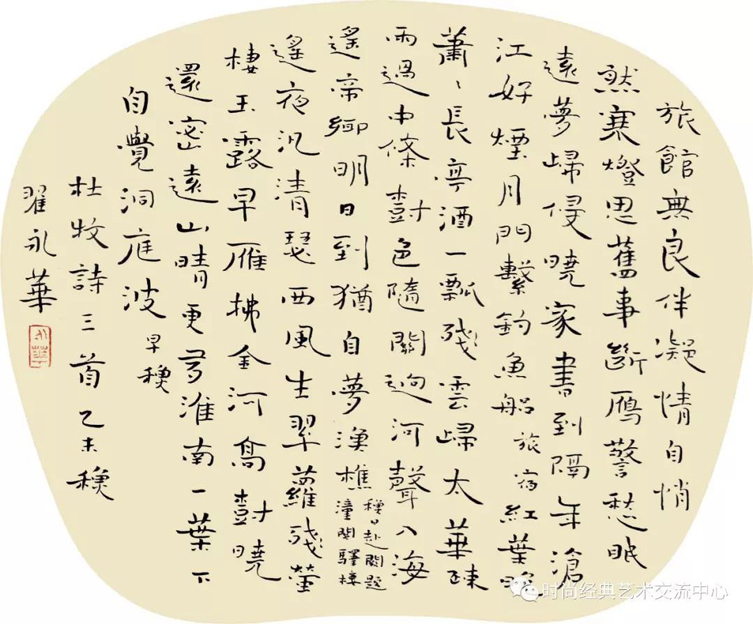 旅館無良伴凝情自悄
然寒燈思舊事斷鴈警愁眠
遠夢歸侵曉家書到隔年滄
江好煙月門繫釣魚船 旅宿 紅葉晚
蕭〻長亭酒一瓢殘雲歸太華疎
雨過中條樹色隨關迥河聲入海
遙帝鄉明日到猶自夢漁樵 穐日赴闕題
潼關驛樓
遙夜汎清瑟西風生翠蘿殘螢
棲玉露早雁拂金河高樹曉
還密遠山晴更多淮南一葉下
自覺洞庭波 早穐
杜牧詩三首乙未穐
翟永華
时尚经典艺术交流中心